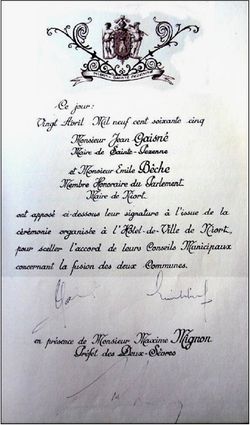 Ce jour:
Vingt Avril Mil neuf cent soixante cinq
Monsieur Jean Gaisné
Maire de Sainte-Pezenne
et Monsieur Emile Bèche
Membre Honoraire du Parlement
Maire de Niort
ont apposé ci-dessous leur signature à l'issue de la
cérémonie organisée à l'Hôtel-de-Ville de Niort,
pour sceller l'accord de leurs Conseils Municipaux
concernant la fusion des deux Communes.
en présence de Monsieur Maxime Mignon
Préfet des Deux-Sèvres